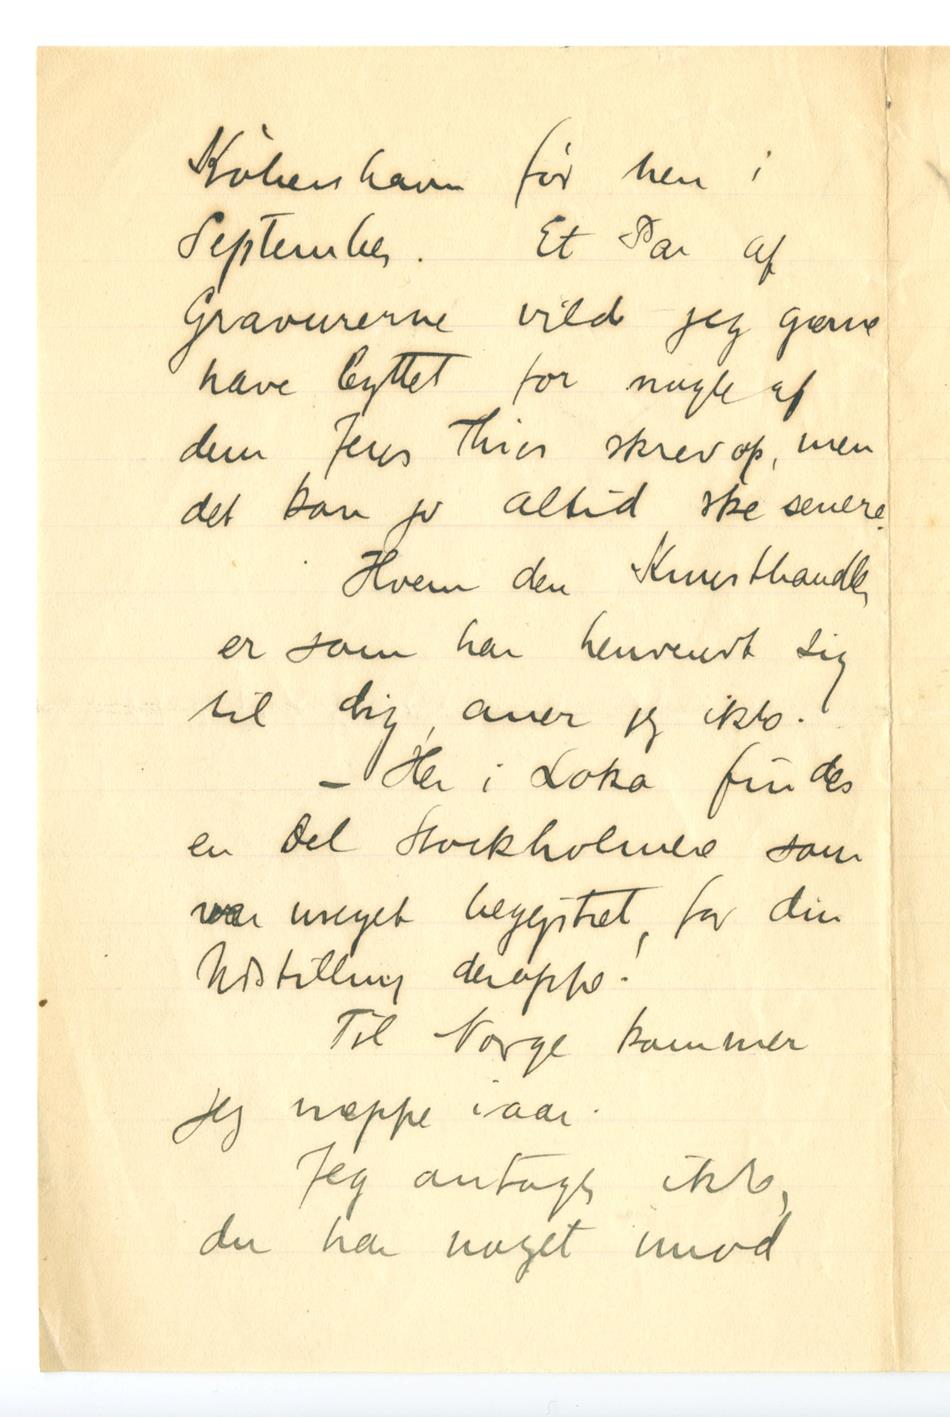 København før hen i
September. Et Par af
Gravurerne vilde jeg gærne
have byttet for nogle af
dem Jens Thiis skrev op, men
det kan jo altid ske senere.
Hvem den Kunsthandler
er som har henvendt sig
til dig, aner jeg ikke.
– Her i Loka findes
en Del Stockholmere som
var meget begejstret for din
Udstilling deroppe.
Til Norge kommer
jeg næppe i aar.
Jeg antager ikke,
du har noget imod